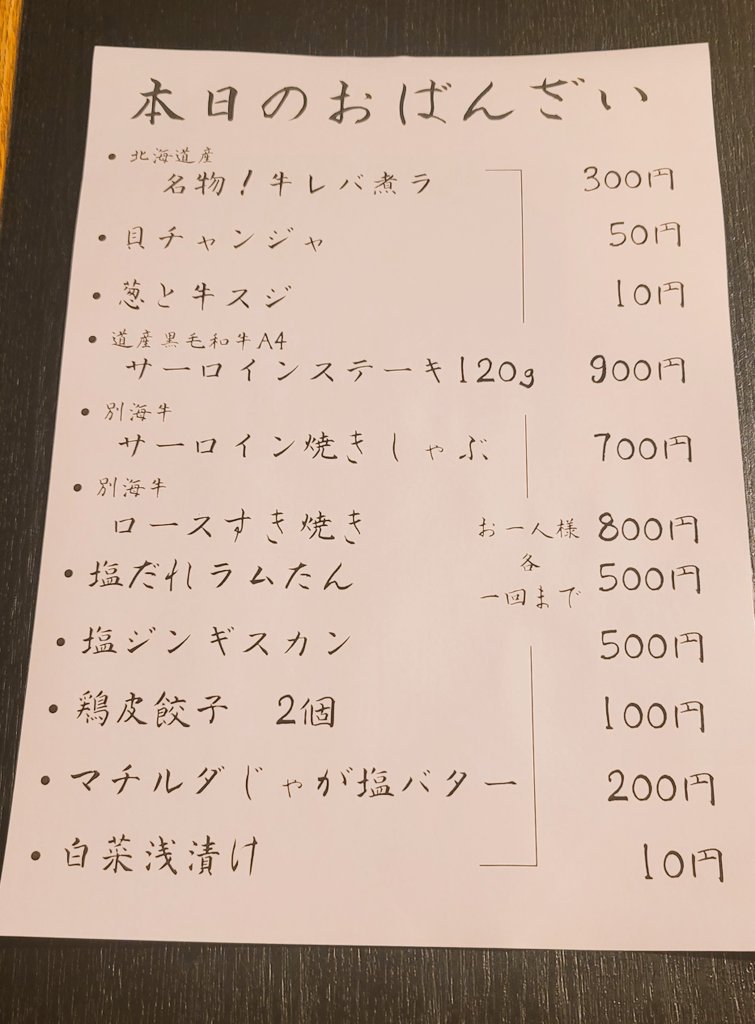 本日のおばんざい
• 北海道産
名物！牛レバ煮ラ 300円
• 貝チャンジャ 50円
• 葱と牛スジ 10円
• 道産黒毛和牛A4
サーロインステーキ120g 900円
• 別海牛
サーロイン焼きしゃぶ 700円
• 別海牛
ロースすき焼き 800円
• 塩だれラムたん 500円
お一人様
各
一回まで
• 塩ジンギスカン 500円
• 鶏皮餃子 2個 100円
• マチルダじゃが塩バター 200円
• 白菜浅漬け 10円